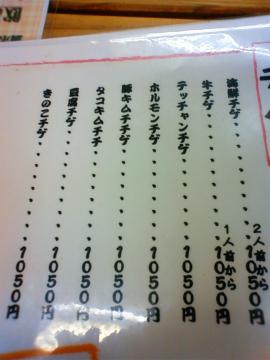 海鮮チゲ・・・・・・・1050円
2人前から
牛チゲ・・・・・・・・1050円
1人前から
テッチャンチゲ・・・・・1050円
ホルモンチゲ・・・・・・1050円
豚キムチチゲ・・・・・・1050円
タコキムチチ・・・・・・1050円
豆腐チゲ・・・・・・・・1050円
きのこチゲ・・・・・・・1050円